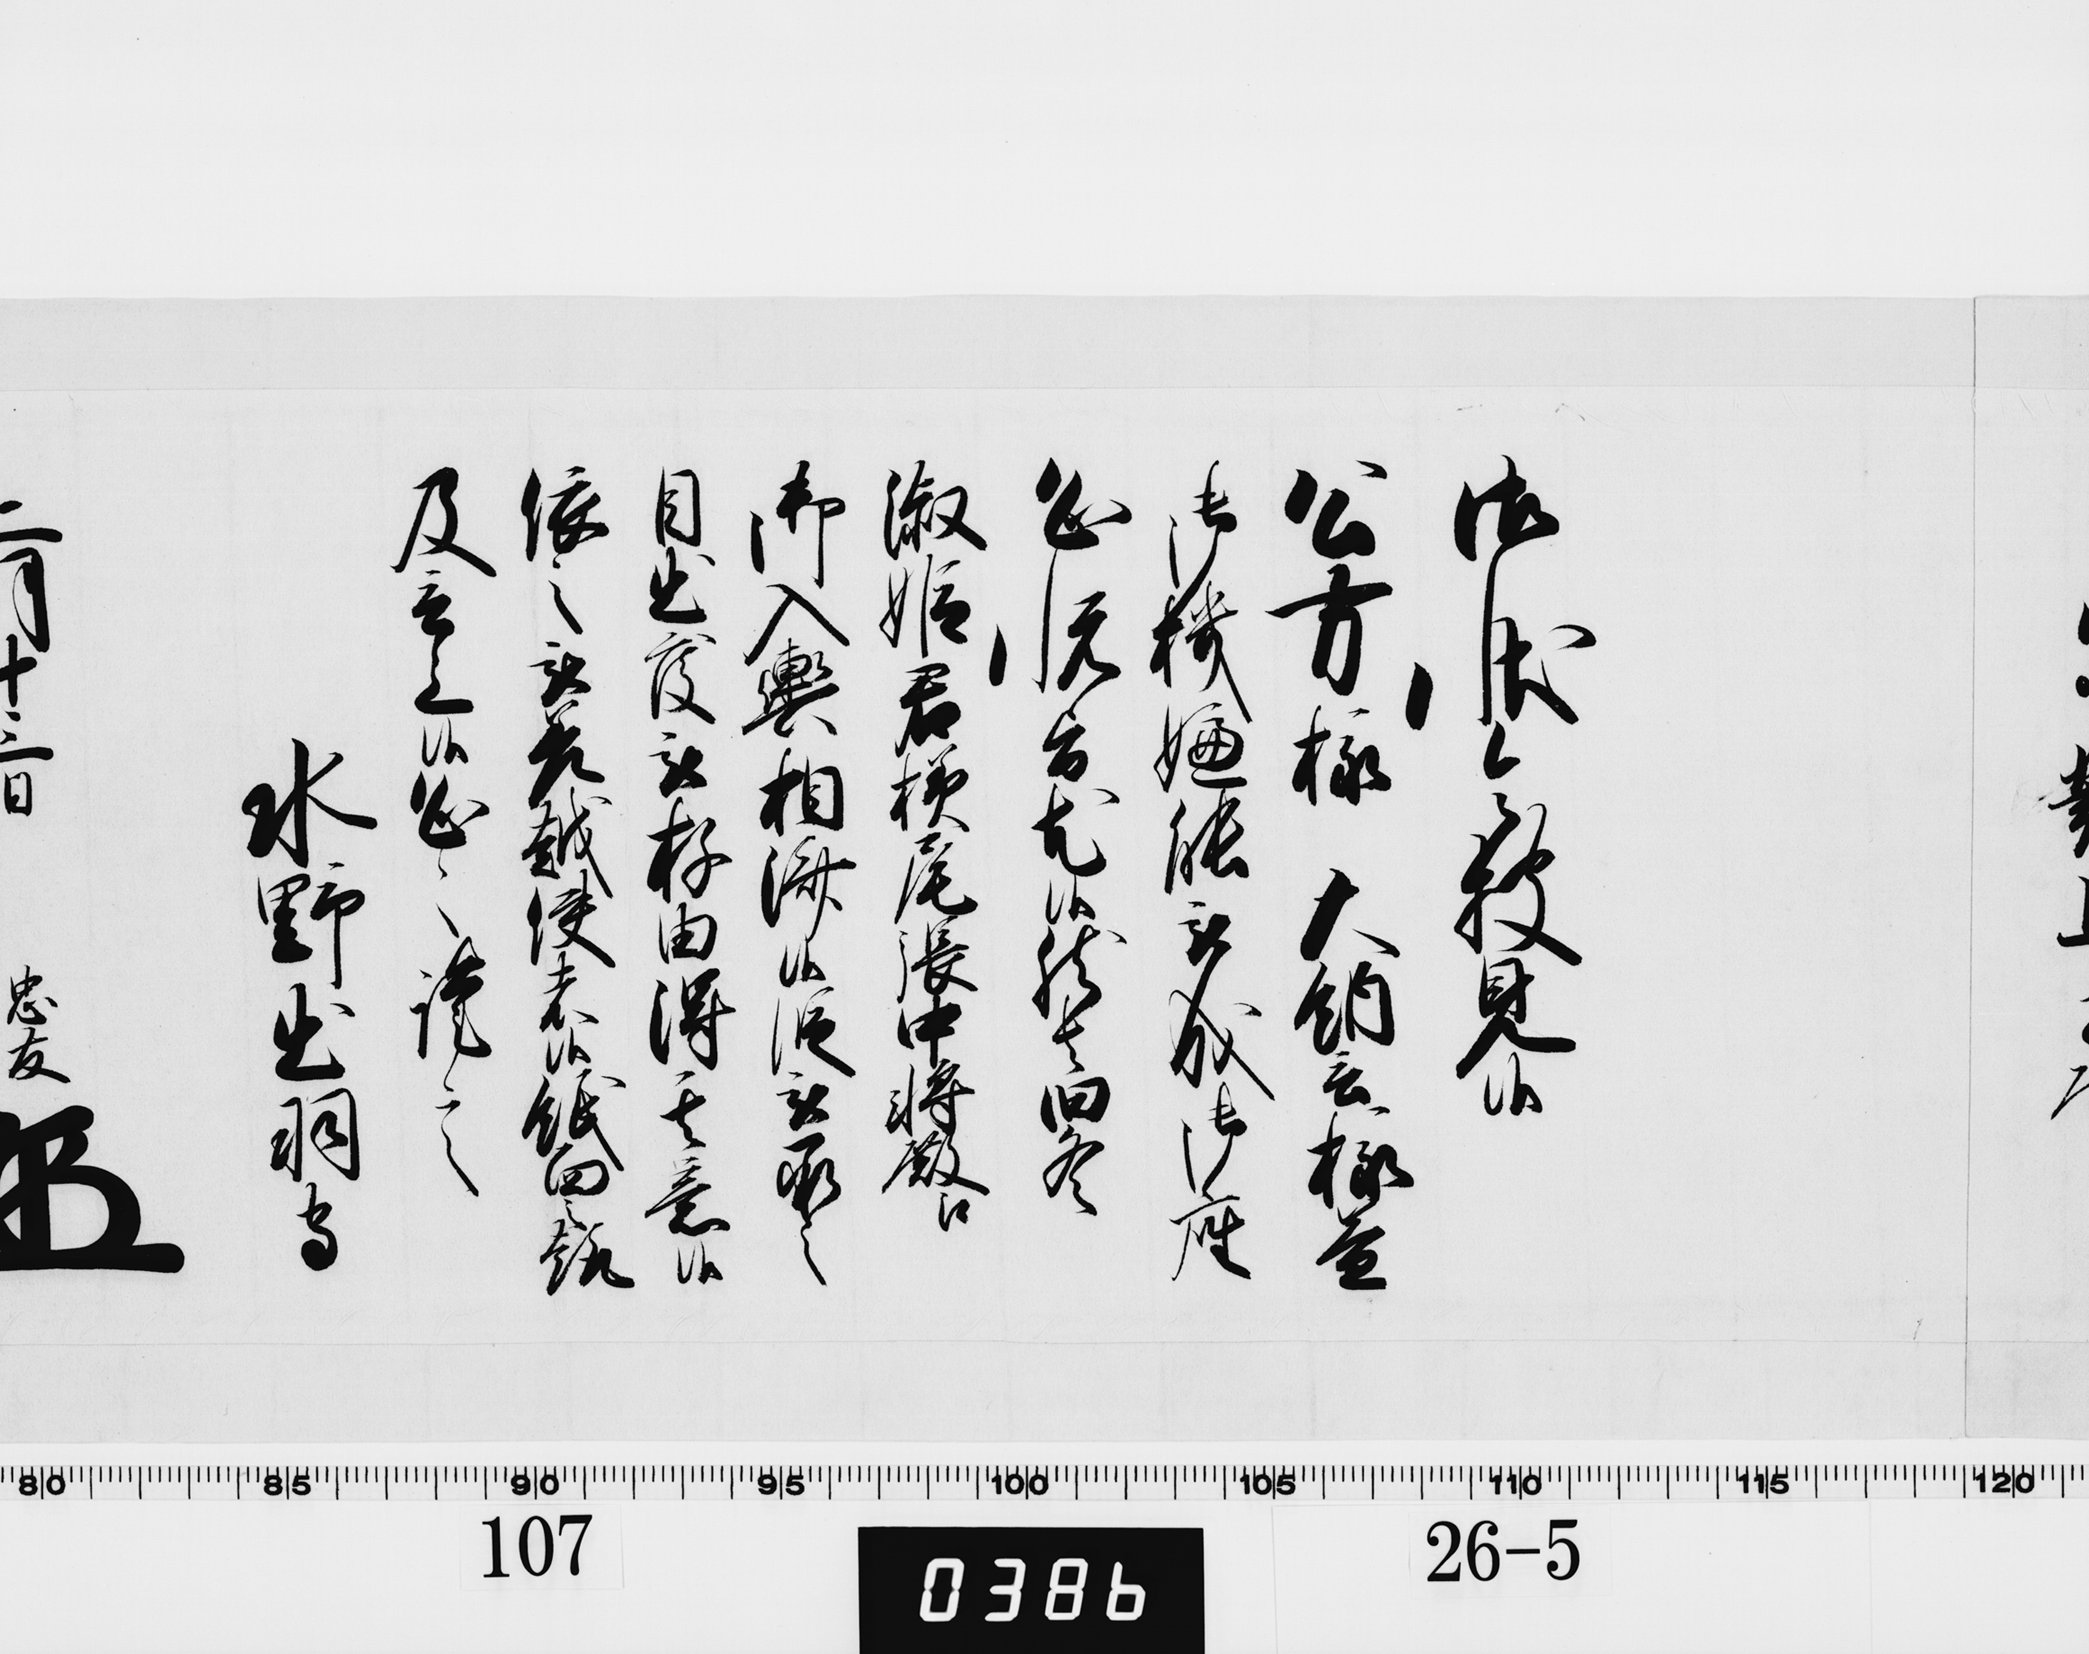 御状令披見候
公方様 大納言様益
御機嫌能被成御座
恐悦旨尤候然者旧冬
淑姫君様尾張中将殿江
御入輿相済候段被承之
目出度被存由得其意候
依之被差越使者候紙面之趣
及言上候恐々謹言
水野出羽守
二月十三日
忠友
107
26-5
0386
80 85 90 95 100 105 110 115 120